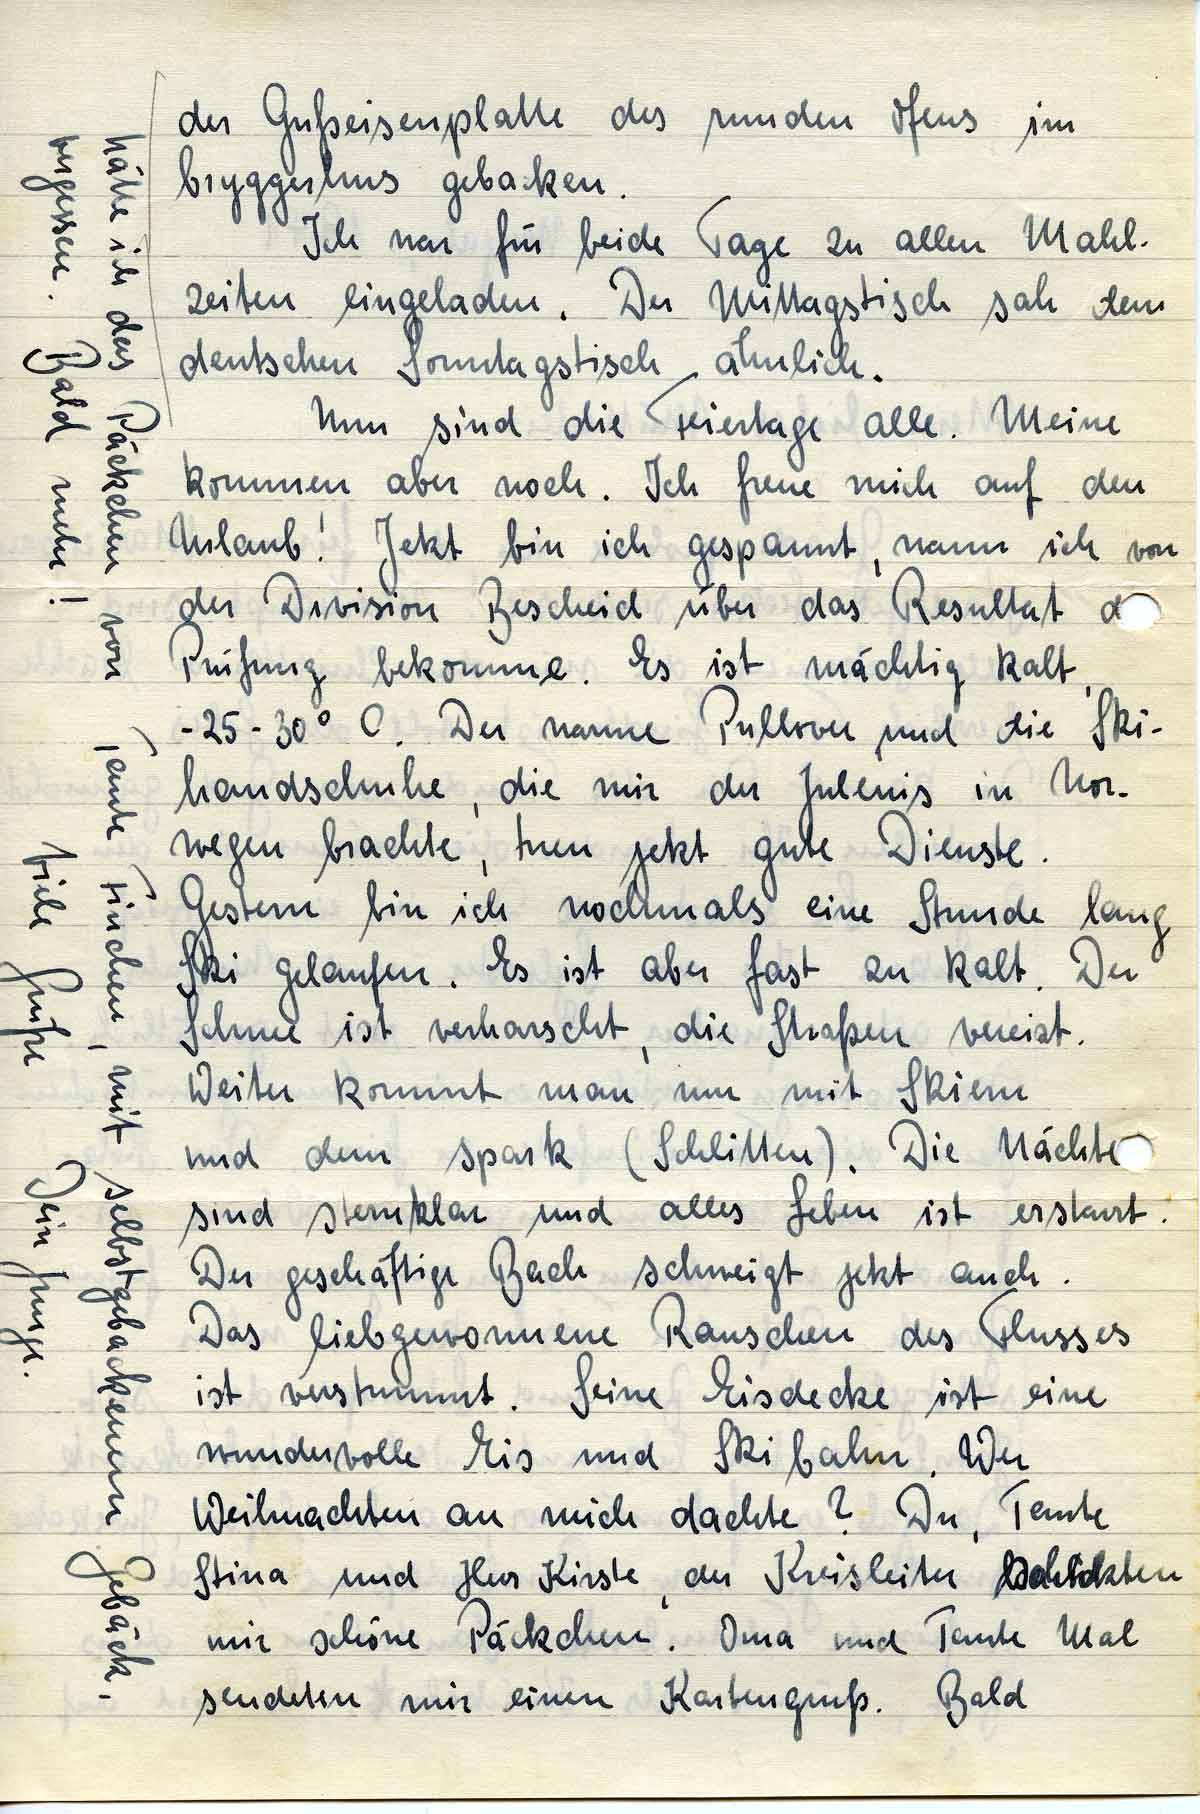 der Gußeisenplatte des runden Ofens im
bryggerhus gebacken.
Ich war für beide Tage zu allen Mahl-
zeiten eingeladen. Der Mittagstisch sah dem
deutschen Sonntagstisch ähnlich.
Nun sind die Feiertage alle. Meine
kommen aber noch. Ich freue mich auf den
Urlaub! Jetzt bin ich gespannt, wann ich von
der Division Bescheid über das Resultat d
Prüfung bekomme. Es ist mächtig kalt,
-25-30° C. Der warme Pullover und die Ski-
handschuhe, die mir der Julenis in Nor-
wegen brachte, tuen jetzt gute Dienste.
Gestern bin ich nochmals eine Stunde lang
Ski gelaufen. Es ist aber fast zu kalt. Der
Schnee ist verharscht, die Straßen vereist.
Weiter kommt man nur mit Skiern
und dem spark (Schlitten). Die Nächte
sind sternklar und alles Leben ist erstarrt.
Der geschäftige Bach schweigt jetzt auch.
Das liebgewonnene Rauschen des Flusses
ist verstummt. Seine Eisdecke ist eine
wundervolle Eis und Skibahn. Wer
Weihnachten an mich dachte? Du, Tante
Stina und Herr Kirste, der Kreisleiter schickten
mir schöne Päckchen. Oma und Tante Mal
sendeten mir einen Kartengruß. Bald
hätte ich das Päckchen von Tante Tinchen, mit selbstgebackenem Gebäck.
vergessen. Bald mehr! Viele Grüße Dein Junge.